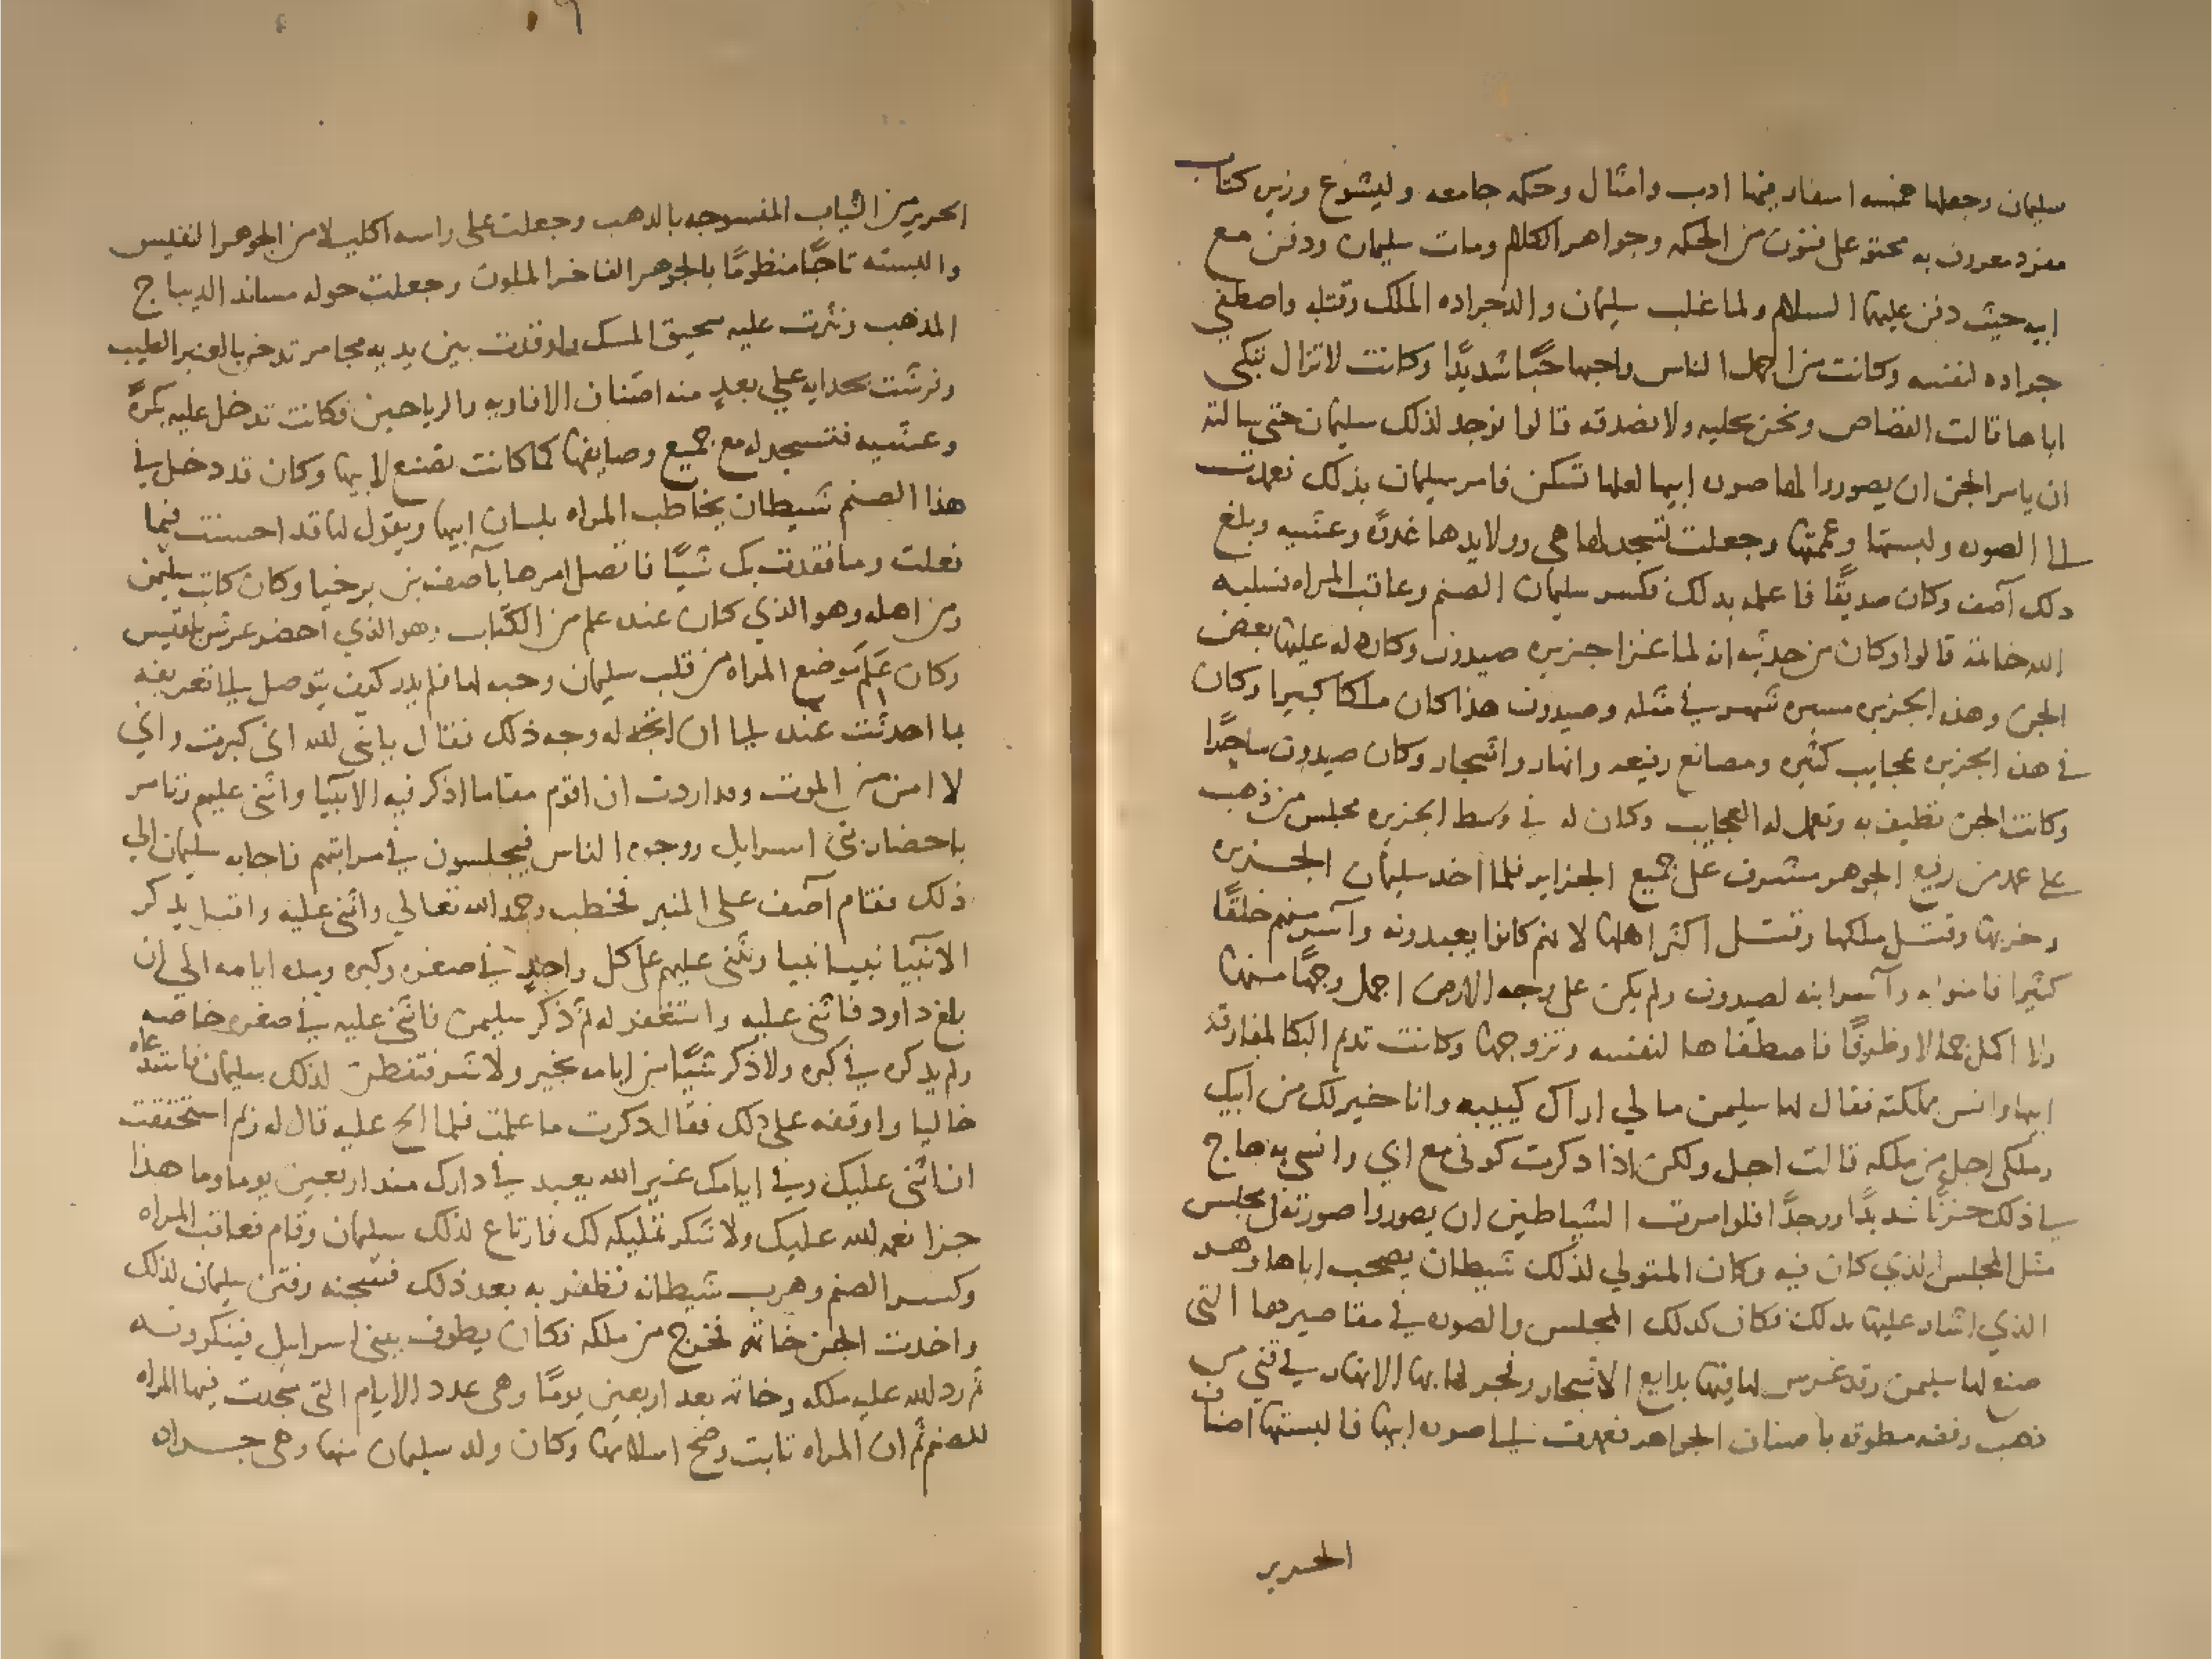 سليمان وجعلها خمسه اسفار فيها ادب وامثال وحكمه جامعه وليشوع وزير كتاب
مفرد معروف به محتو على فنون من الحكمه وجواهر الكلام ومات سليمان ودفن مع
ابيه حيث دفن عليهما السلام ولما غلب سليمان والد جراده الملك وقتله واصطفي
جراده لنفسه وكانت من اجمل الناس واحبها حبًا شديدًا وكانت لا تزال تبكى
اباها قالت القصاص ونحن نحليه ولا نصدقه قالوا فوجد لذلك سليمان حتى سالته
ان يامر الجن ان يصوروا لها صوره ابيها لعلها تسكن فامر سليمان بذلك فعمدت
الى الصوره ولبستها وعممتها وجعلت تسجد لها هى وولايدها غدوه وعشيه وبلغ
ذلك آصف وكان صديقًا فاعلمه بذلك فكسر سليمان الصنم وعاتب المراه فسلبه
الله خاتمه قالوا وكان من حديثه انه لما غزا جزيره صيدون وكان له عليها بعض
الجن وهذه الجزيره مسيره شهر في مثله وصيدون هذا كان ملكا كبيرا وكان
في هذه الجزيره عجايب كثيره ومصانع رفيعه وانهار واشجار وكان صيدون ساحرًا
وكانت الجن تطيف به وتعمل له العجايب وكان له في وسط الجزيره مجلس من ذهب
على عمد من رفيع الجوهر مشرف على جميع الجزاير فلما اخد سليمان الجزيره
وخربها وقتل ملكها وقتل اكثر اهلها لانهم كانوا يعبدونه وآسر منهم خلقًا
كثيرا فامنوا به وآسر ابنه لصيدون ولم يكن على وجه الارض اجمل وجهًا منها
ولا اكمل جمالا وظرفًا فاصطفاها لنفسه وتزوجها وكانت تديم البكا لمفارقه
ابيها وانس مملكته فقال لها سليمن ما لي اراك كييبه وانا خير لك من ابيك
وملكى اجل من ملكه قالت اجل ولكن اذا دكرت كونى مع ابي وانسى به هاج
لي ذلك حزنًا شديدًا ووجدًا فلو امرت الشياطين ان يصوروا صورته في مجلس
مثل المجلس الذي كان فيه وكان المتولي لذلك شيطان يصحب اباها وهو
الذي اشار عليها بذلك فكان كذلك المجلس والصوره في مقاصيرها التى
صنع لها سليمن وقد غرس لها فيها بدايع الاشجار وفجر لها بها الانهار في قني من
ذهب وفضه مطوقه باصناف الجواهر فعمدت الى صوره ابيها فالبستها اصناف
الحرير
الحرير من الثياب المنسوجه بالدهب وجعلت على راسه اكليلا من الجوهر النفيس
والبسته تاجًا منظومًا بالجوهر الفاخر الملون وجعلت حوله مساند الديباج
المذهب ونثرت عليه سحيق المسك واوقدت بين يديه مجامر تدخن بالعنبر الطيب
وفرشت بحدايه علي بعدٍ منه اصناف الافاويه والرياحين فكانت تدخل عليه بكرةً
وعشيه فتسجد له مع جميع وصايفها كما كانت تصنع لابيها وكان قد دخل في
هذا الصنم شيطان يخاطب المراه بلسان ابيها ويقول لها قد احسنت فيما
فعلت وما فقدت بك شيًا فاتصل امرها بآصف بن برخيا وكان كاتب سليمن
ومن اهله وهو الذي كان عنده علم من الكتاب وهو الذي احضر عرش بلقيس
وكان عَلِمَ موضع المراه من قلب سليمان وحبه لها فلم يدر كيف يتوصل الى تعريفه
بما احدثت عنده الى ان اتجه له وجه ذلك فقال يا نبي الله اني كبرت واني
لا امن من الموت وقد اردت ان اقوم مقاما اذكر فيه الانبيا واثنى عليهم فتامر
باحضار بني اسرايل ووجوه الناس فيجلسون في مراتبهم فاجابه سليمان الي
ذلك فقام آصف على المنبر فخطب وحمد الله تعالي واثنى عليه واقبل يذكر
الانبيا نبيا نبيا ويثنى عليهم على كل واحدٍ في صغره وكبره ومده ايامه الي ان
بلغ داود فاثنى عليه واستغفر له ثم ذكر سليمن فاثنى عليه في صغره خاصه
ولم يدكره في كبره ولا ذكر شيًا من ايامه بخير ولا شر فتفطن لذلك سليمان فاستدعاه
خاليا واوقفه على ذلك فقال ذكرت ما علمت فلما الح عليه قال له ولم استحققت
ان اثنى عليك وفي ايامك غير الله يعبد في دارك منذ اربعين يوما وما هذا
جزا نعمه الله عليك ولا شكر تمليكه لك فارتاع لذلك سليمان وقام فعاقب المراه
وكسر الصنم وهرب شيطانه فظفر به بعد ذلك فسجنه وفتن سليمان لذلك
واخدت الجن خاتمه فخرج من ملكه فكان يطوف ببني اسرايل فينكرونه
ثم رد الله عليه ملكه وخاتمه بعد اربعين يومًا وهى عدد الايام التى سجدت فيها المراه
للصنم ثم ان المراه تابت وصح اسلامها وكان ولد سليمان منها وهى جراده